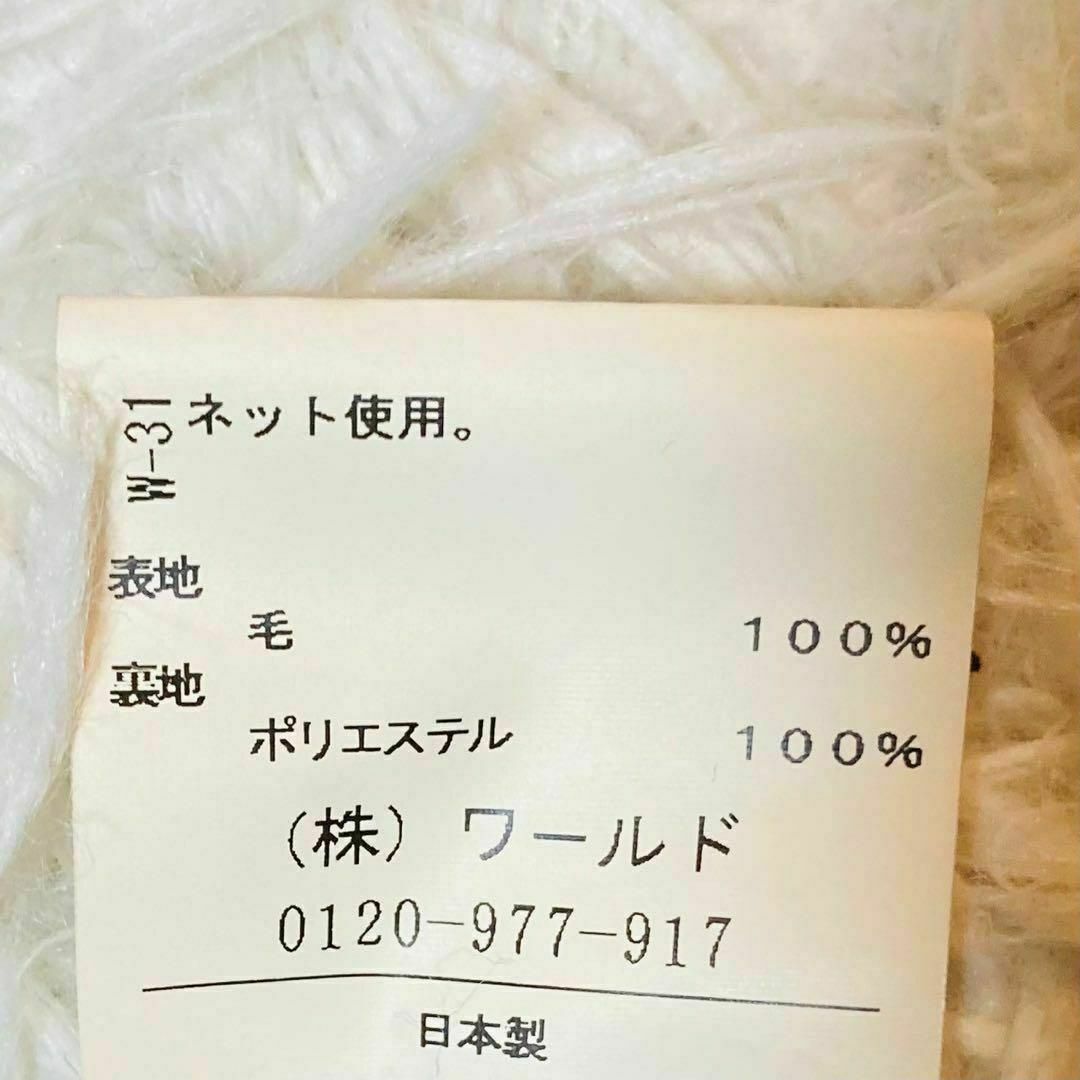 ネット使用。
W-31
表地
毛 １００％
裏地
ポリエステル １００％
(株) ワールド
0120-977-917
日本製